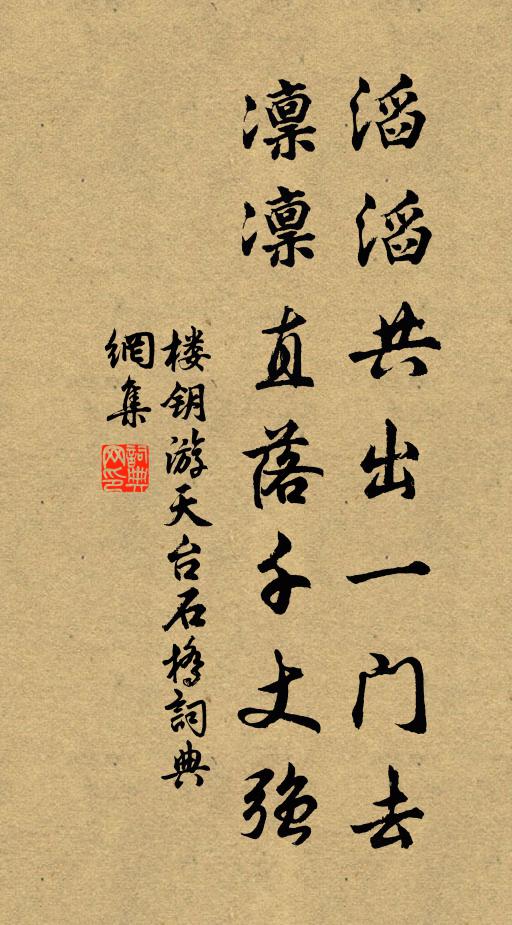 滔滔共出一门去
凛凛直落千丈强
楼钥游天台石橋詞典
網集
詞典网印